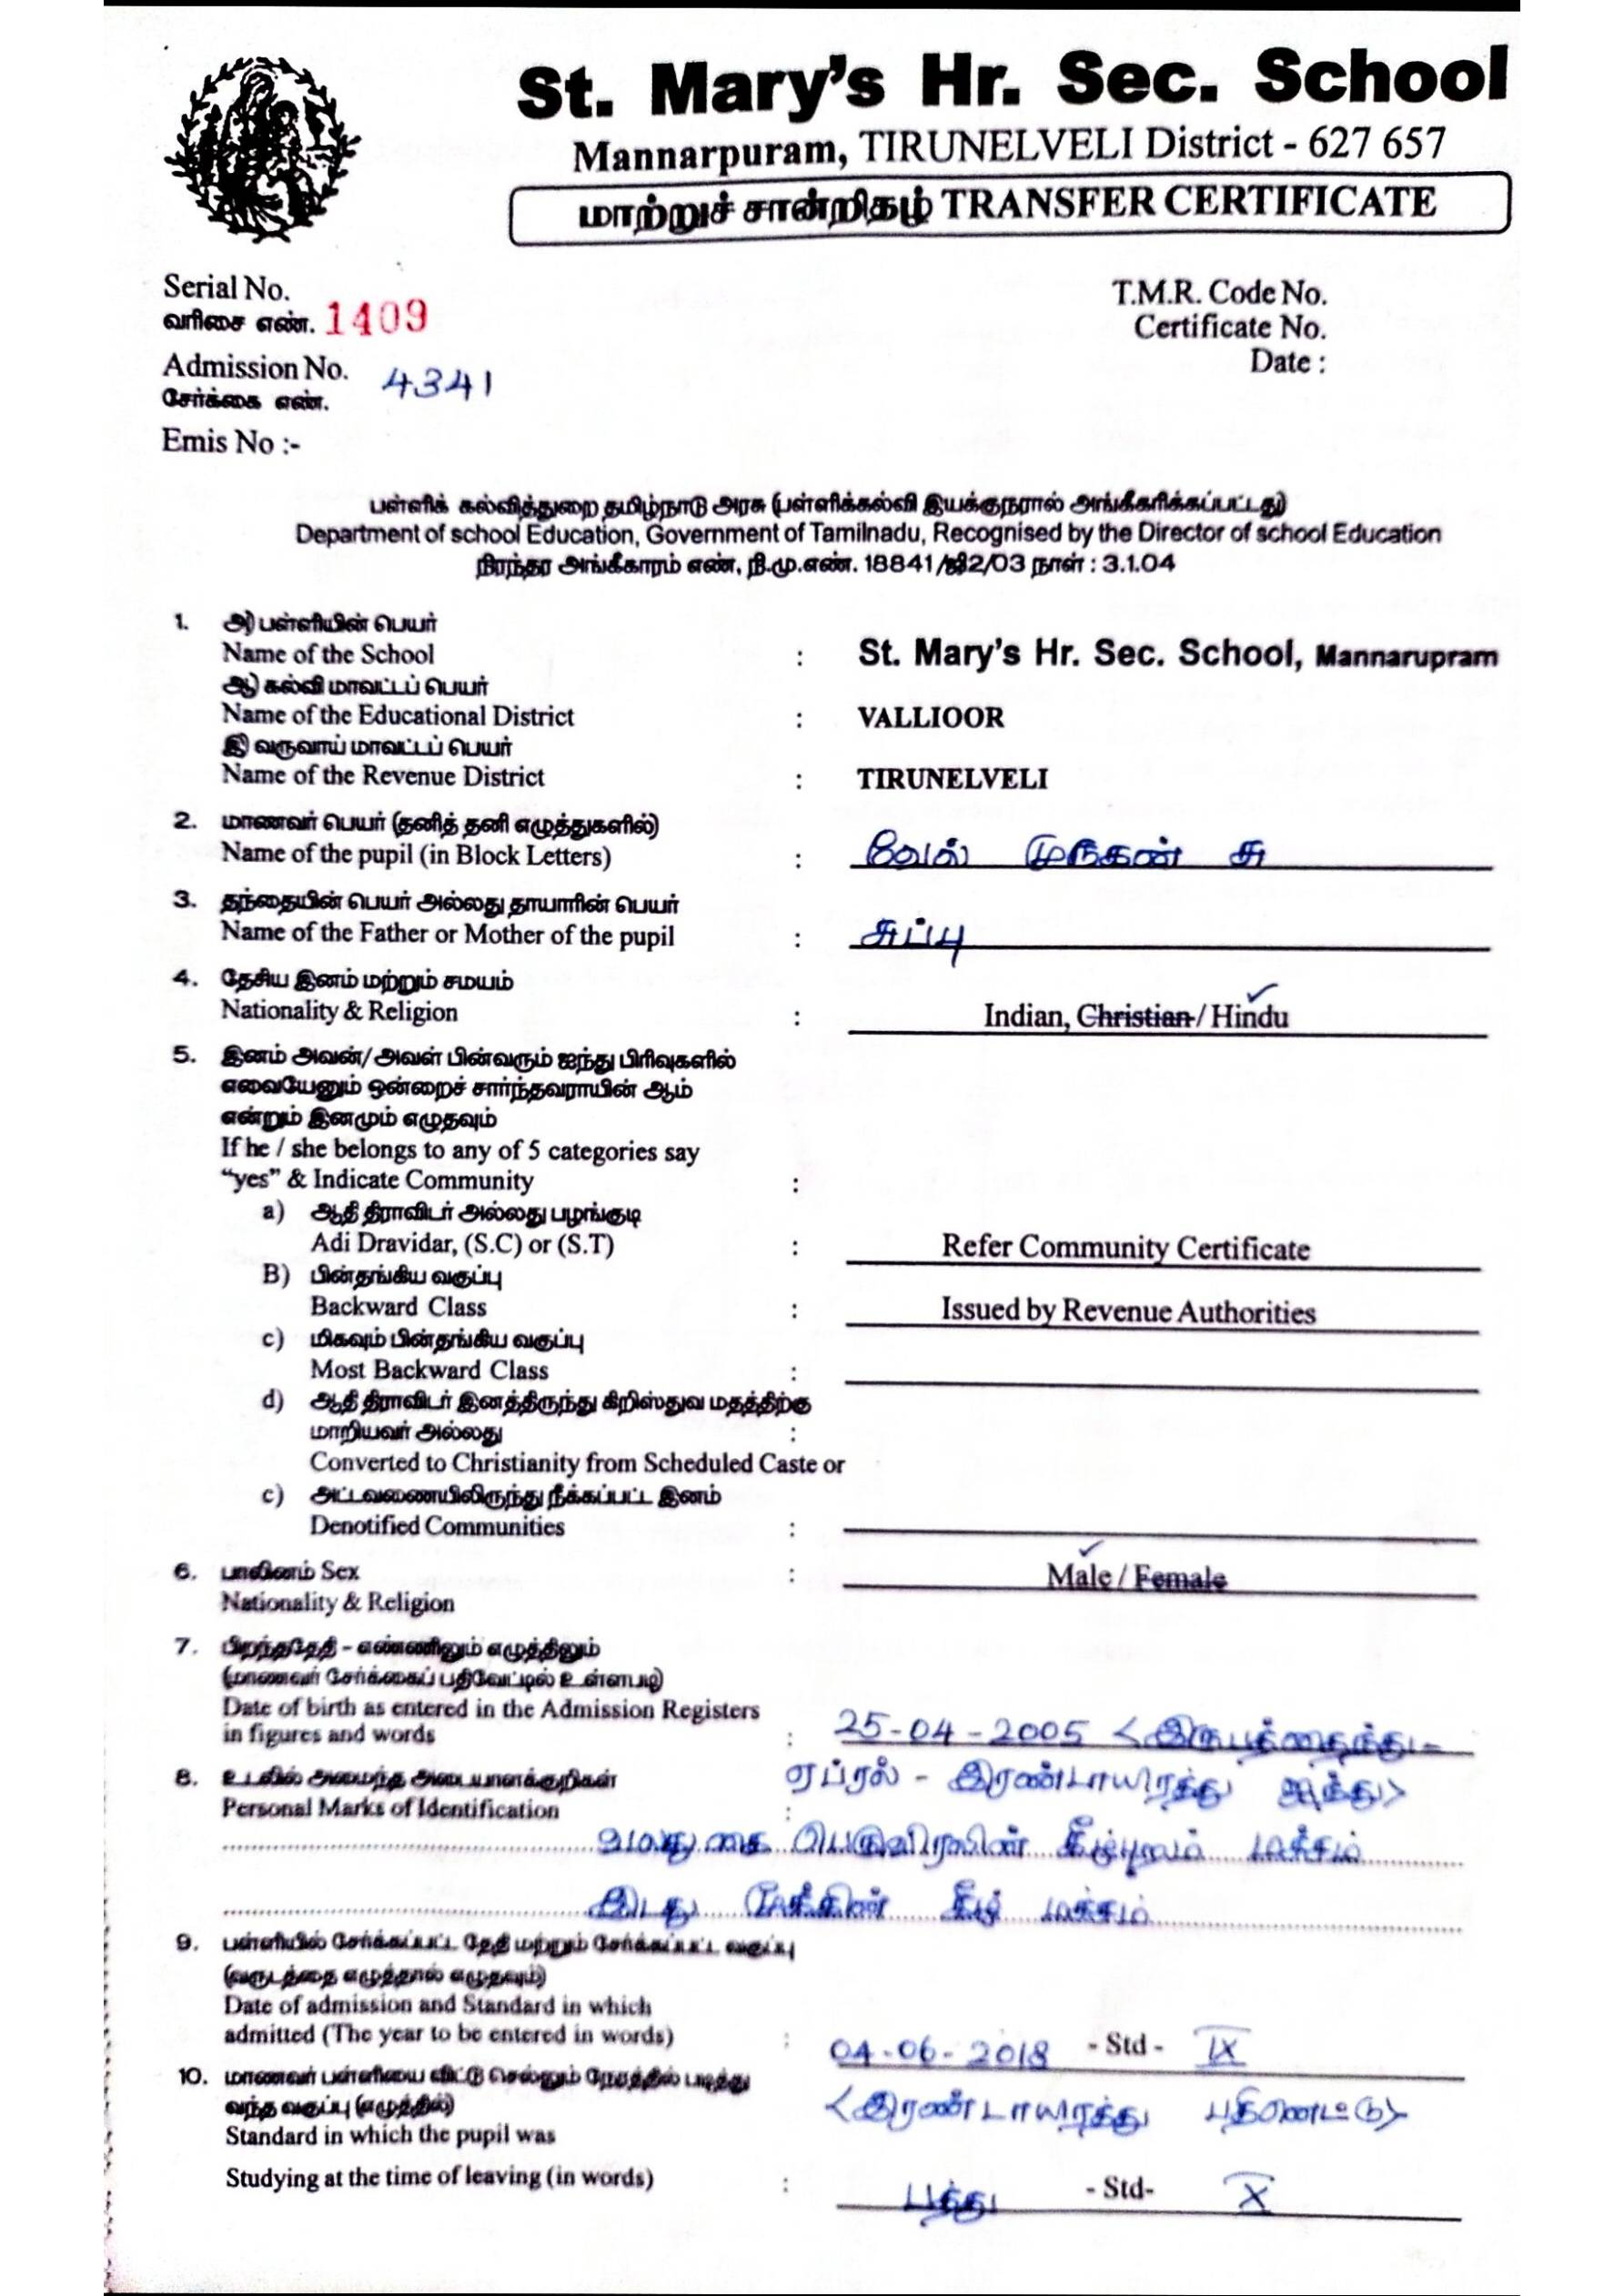 St. Mary's Hr. Sec. School
Mannarpuram, TIRUNELVELI District - 627 657
மாற்றுச் சான்றிதழ் TRANSFER CERTIFICATE
Serial No.
வரிசை எண். 1409
T.M.R. Code No.
Certificate No.
Date :
Admission No. 4341
சேர்க்கை எண்.
Emis No :-
பள்ளிக் கல்வித்துறை தமிழ்நாடு அரசு (பள்ளிக்கல்வி இயக்குநரால் அங்கீகரிக்கப்பட்டது)
Department of school Education, Government of Tamilnadu, Recognised by the Director of school Education
நிரந்தர அங்கீகாரம் எண், நி.மு.எண். 18841/ஜி2/03 நாள் : 3.1.04
1. அ) பள்ளியின் பெயர்
Name of the School : St. Mary's Hr. Sec. School, Mannarupram
ஆ) கல்வி மாவட்டப் பெயர்
Name of the Educational District : VALLIOOR
இ) வருவாய் மாவட்டப் பெயர்
Name of the Revenue District : TIRUNELVELI
2. மாணவர் பெயர் (தனித் தனி எழுத்துகளில்)
Name of the pupil (in Block Letters) : வேல் முருகன் சு
3. தந்தையின் பெயர் அல்லது தாயாரின் பெயர்
Name of the Father or Mother of the pupil : சுப்பு
4. தேசிய இனம் மற்றும் சமயம்
Nationality & Religion : Indian, Christian / Hindu
5. இனம் அவன்/அவள் பின்வரும் ஐந்து பிரிவுகளில்
எவையேனும் ஒன்றைச் சார்ந்தவராயின் ஆம்
என்றும் இனமும் எழுதவும்
If he / she belongs to any of 5 categories say
"yes" & Indicate Community :
a) ஆதி திராவிடர் அல்லது பழங்குடி
Adi Dravidar, (S.C) or (S.T) : Refer Community Certificate
B) பின்தங்கிய வகுப்பு
Backward Class : Issued by Revenue Authorities
c) மிகவும் பின்தங்கிய வகுப்பு
Most Backward Class :
d) ஆதி திராவிடர் இனத்திருந்து கிறிஸ்துவ மதத்திற்கு
மாறியவர் அல்லது :
Converted to Christianity from Scheduled Caste or
c) அட்டவணையிலிருந்து நீக்கப்பட்ட இனம்
Denotified Communities :
6. பாலினம் Sex : Male / Female
Nationality & Religion
7. பிறந்ததேதி - எண்ணிலும் எழுத்திலும்
(மாணவர் சேர்க்கைப் பதிவேட்டில் உள்ளபடி)
Date of birth as entered in the Admission Registers
in figures and words : 25-04-2005 <இருபத்தைந்து-
ஏப்ரல் - இரண்டாயிரத்து ஐந்து>
8. உடலில் அமைந்த அடையாளக்குறிகள்
Personal Marks of Identification :
வலது கை பெருவிரலின் கீழ்புறம் மச்சம்
இடது மூக்கின் கீழ் மச்சம்
9. பள்ளியில் சேர்க்கப்பட்ட தேதி மற்றும் சேர்க்கப்பட்ட வகுப்பு
(வருடத்தை எழுத்தால் எழுதவும்)
Date of admission and Standard in which
admitted (The year to be entered in words) : 04-06-2018 - Std - IX
<இரண்டாயிரத்து பதினெட்டு>
10. மாணவர் பள்ளியை விட்டு செல்லும் நேரத்தில் படித்து
வந்த வகுப்பு (எழுத்தில்)
Standard in which the pupil was
Studying at the time of leaving (in words) : பத்து - Std- X